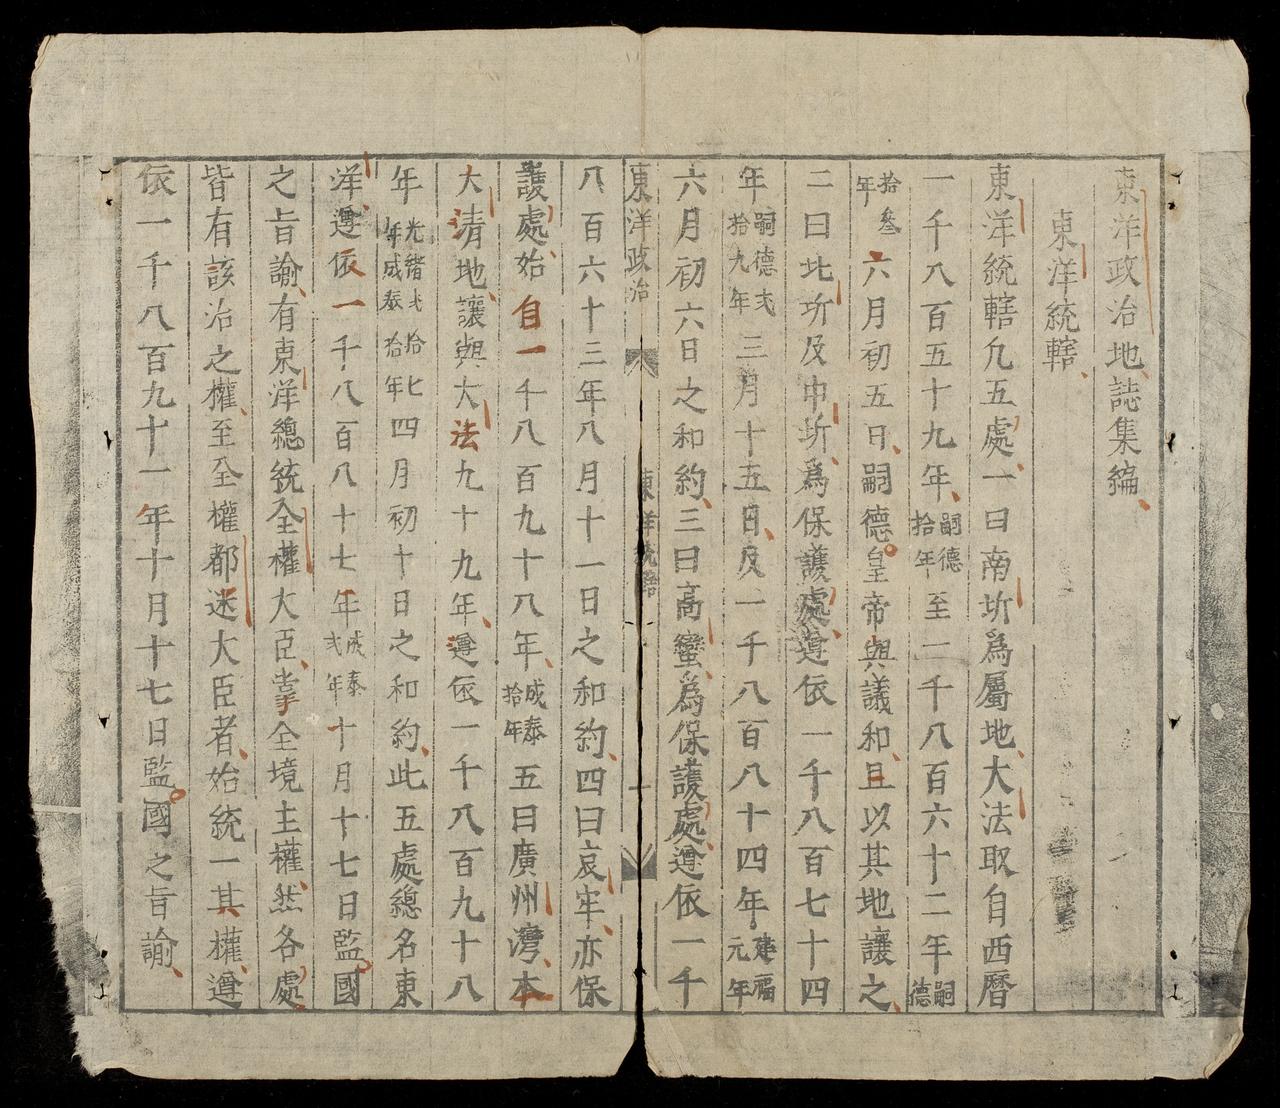 東洋政治地誌集編
東洋統轄
東洋統轄凢五處一曰南圻為屬地大法取自西曆
一千八百五十九年嗣德拾年至一千八百六十二年嗣德
拾叁年六月初五日嗣德皇帝與議和且以其地讓之
二曰北圻及中圻為保護處遵依一千八百七十四
年嗣德弍拾九年三月十五日及一千八百八十四年建福元年
六月初六日之和約三曰高蠻為保護處遵依一千
東洋政治 東洋統轄 一
八百六十三年八月十一日之和約四曰哀牢亦保
護處始自一千八百九十八年成泰拾年五曰廣州灣本
大清地讓與大法九十九年遵依一千八百九十八
年光緒弍拾七年成泰拾年四月初十日之和約此五處總名東
洋遵依一千八百八十七年成泰弍年十月十七日監國
之旨諭有東洋總統全權大臣掌全境主權然各處
皆有該治之權至全權都迷大臣者始統一其權遵
依一千八百九十一年十月十七日監國之旨諭